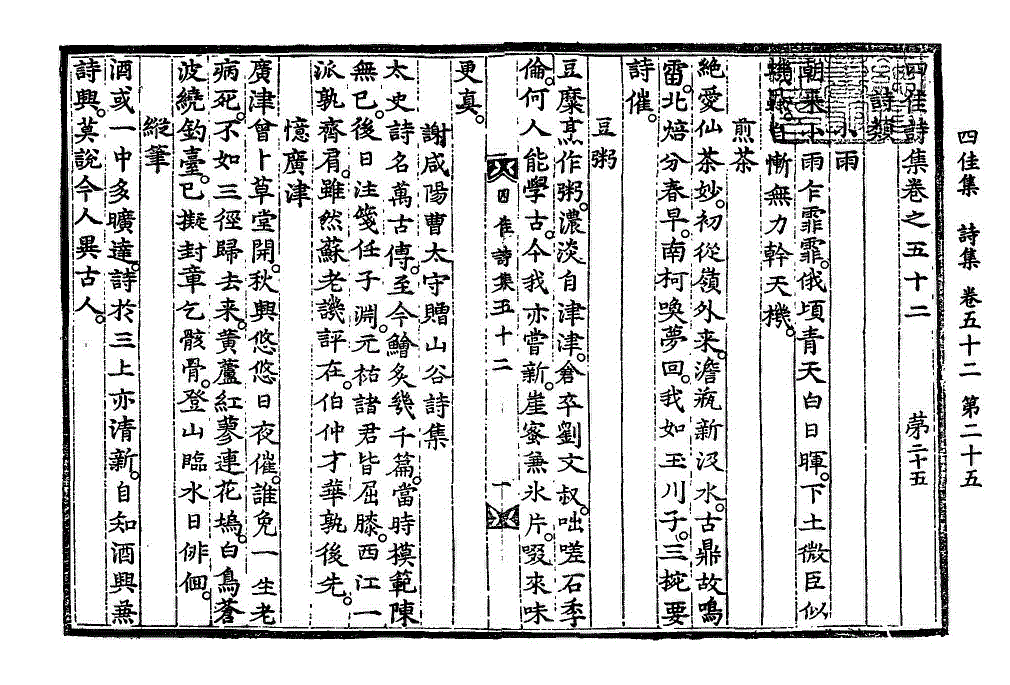 四佳集 詩集 卷五十二 第二十五
四佳詩集卷之五十二 苐二十五
詩類
小雨
朝来小雨乍霏霏。俄頃青天白日暉。下土微臣似
自慚無力幹天機。
煎茶
絶愛仙茶妙。初從嶺外来。澹瓶新汲水。古鼎故鳴
雷。北焙分春早。南柯喚夢回。我如玉川子。三椀要
詩催。
豆粥
豆糜烹作粥。濃淡自津津。倉卒劉文叔。咄嗟石季
倫。何人能學古。今我亦嘗新。崖蜜兼氷片。啜来味
四佳詩集五十二 一
更真。
謝咸陽曹太守贈山谷詩集
太史詩名萬古傳。至今鱠炙幾千篇。當時模範陳
無已。後日注箋任子淵。元祐諸君皆屈膝。西江一
派孰齊肩。雖然蘇老譏評在。伯仲才華孰後先。
憶廣津
廣津曾卜草堂開。秋興悠悠日夜催。誰免一生老
病死。不如三徑歸去来。黄蘆紅蓼連花塢。白鳥蒼
波繞釣臺。已擬封章乞骸骨。登山臨水日徘徊。
縱筆
酒或一中多曠達。詩於三上亦清新。自知酒興兼
詩興。莫說今人異古人。